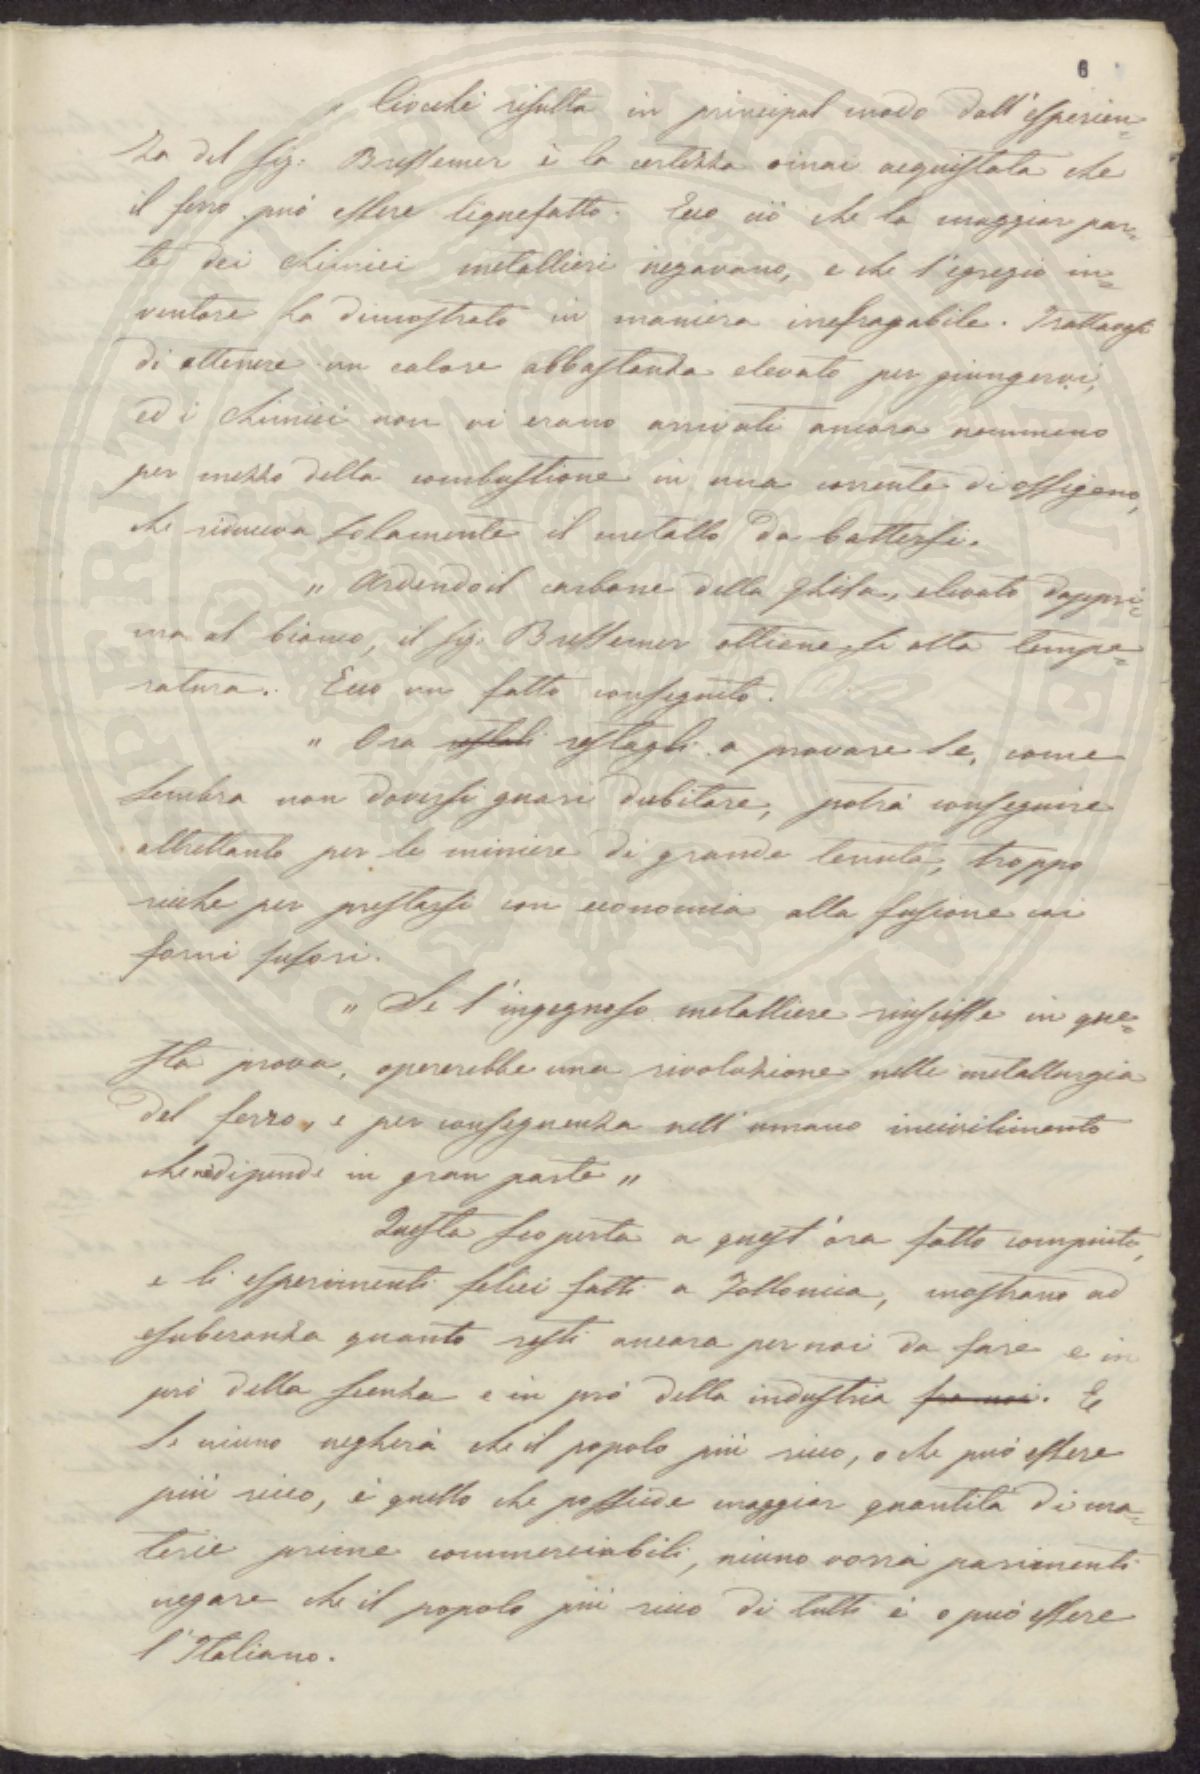 6
„ Ciocchè risulta in principal modo dall'esperien=
za del Sig: Bressemer è la certezza omai acquistata che
il ferro può essere liquefatto. Ecco ciò che la maggior par=
te dei chimici metallieri negavano, e che l'egregio in=
ventore ha dimostrato in maniera irrefragabile. Trattavasi
di ottenere un calore abbastanza elevato per giungervi,
ed i chimici non vi erano arrivati ancora nemmeno
per mezzo della combustione in una corrente di ossigeno,
che riduceva solamente il metallo da battersi.
„ Ardendo il carbone della ghisa, elevato dappri=
ma al bianco, il sig: Bressemer ottiene sì alta tempe=
ratura. Ecco un fatto conseguito.
„ Ora restali restagli a provare se, come
sembra non doversi guari dubitare, potrà conseguire
altrettanto per le miniere di grande tenuta, troppo
ricche per prestarsi con economia alla fusione coi
forni fusori.
„ Se l'ingegnoso metalliere riuscisse in que=
sta prova, opererebbe una rivoluzione nella metallurgia
del ferro, e per conseguenza nell'umano incivilimento
che ne dipende in gran parte „
Questa scoperta a quest'ora fatto compiuto,
e li esperimenti felici fatti a Follonica, mostrano ad
esuberanza quanto resti ancora per noi da fare e in
prò della scienza e in prò della industria fra noi. E
se niuno negherà che il popolo più ricco, o che può essere
più ricco, è quello che possiede maggior quantità di ma=
terie prime commerciabili, niuno vorrà parimenti
negare che il popolo più ricco di tutti è o può essere
l'Italiano.